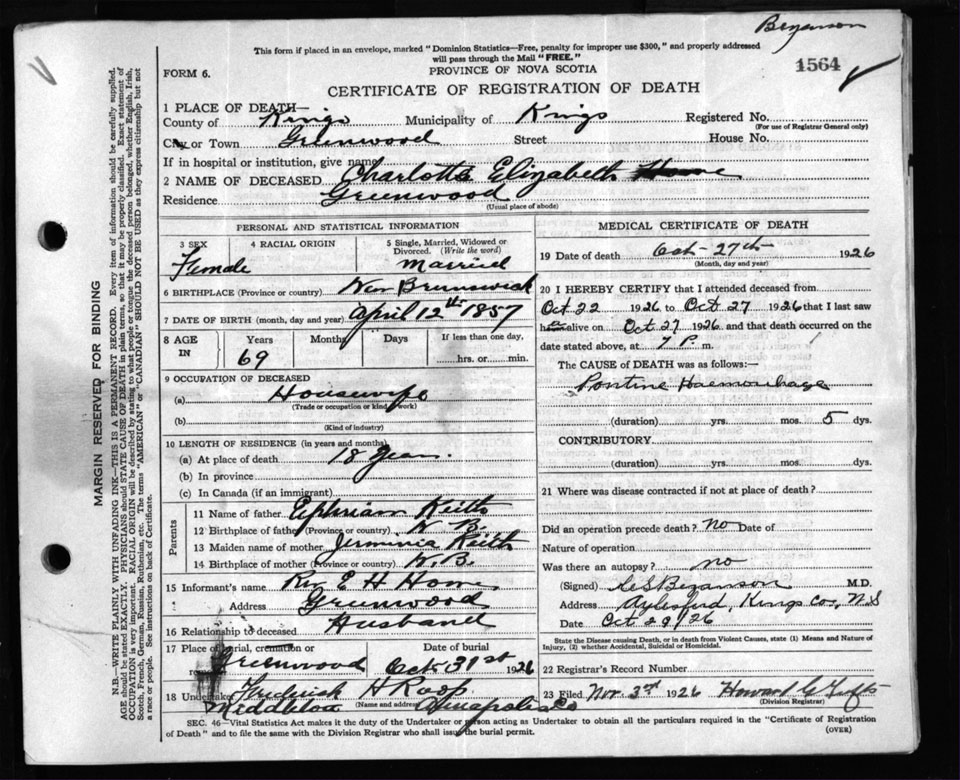 Bezanson
This form if placed in an envelope, marked "Dominion Statistics—Free, penalty for improper use $300," and properly addressed
will pass through the Mail "FREE."
1564
FORM 6.
PROVINCE OF NOVA SCOTIA
CERTIFICATE OF REGISTRATION OF DEATH
1 PLACE OF DEATH—
County of Kings Municipality of Kings Registered No.
(For use of Registrar General only)
City or Town Greenwood Street House No.
If in hospital or institution, give name
2 NAME OF DECEASED Charlotte Elizabeth
Residence Greenwood
(Usual place of abode)
PERSONAL AND STATISTICAL INFORMATION
3 SEX 4 RACIAL ORIGIN 5 Single, Married, Widowed or
Divorced. (Write the word)
Female Married
6 BIRTHPLACE (Province or country) New Brunswick
7 DATE OF BIRTH (month, day and year) April 12th 1857
8 AGE IN Years Months Days If less than one day,
69 hrs. or min.
9 OCCUPATION OF DECEASED
(a) Housewife
(Trade or occupation or kind of work)
(b)
(Kind of industry)
10 LENGTH OF RESIDENCE (in years and months)
(a) At place of death 18 Years
(b) In province
(c) In Canada (if an immigrant)
Parents
11 Name of father Ephriam Keith
12 Birthplace of father (Province or country) N B.
13 Maiden name of mother Jerminia Keith
14 Birthplace of mother (Province or country) N.B.
15 Informant's name Rev E H Howe
Address Greenwood
16 Relationship to deceased Husband
17 Place of burial, cremation or Date of burial
Greenwood Oct 31st 1926
18 Undertaker Frederick H Roop
(Name and address)
Middleton Annapolis Co
MEDICAL CERTIFICATE OF DEATH
19 Date of death Oct 27th 1926
(Month, day and year)
20 I HEREBY CERTIFY that I attended deceased from
Oct 22 1926 to Oct 27 1926 that I last saw
her alive on Oct 27 1926 and that death occurred on the
date stated above, at 7 P. m.
The CAUSE OF DEATH was as follows:—
Pontine Haemorrhage
(duration) yrs. mos. 5 dys.
CONTRIBUTORY
(duration) yrs. mos. dys.
21 Where was disease contracted if not at place of death?
Did an operation precede death? no Date of
Nature of operation
Was there an autopsy? no
(Signed) Bezanson M.D.
Address Aylesford, Kings Co, N.S
Date Oct 29/26
State the Disease causing Death, or in death from Violent Causes, state (1) Means and Nature of
Injury, (2) whether Accidental, Suicidal or Homicidal.
22 Registrar's Record Number
23 Filed Nov 3rd 1926 Howard G Tufts
(Division Registrar)
SEC. 46—Vital Statistics Act makes it the duty of the Undertaker or person acting as Undertaker to obtain all the particulars required in the "Certificate of Registration
of Death" and to file the same with the Division Registrar who shall issue the burial permit.
(OVER)
MARGIN RESERVED FOR BINDING
N.B.—WRITE PLAINLY WITH UNFADING INK—THIS IS A PERMANENT RECORD. Every item of information should be carefully supplied.
AGE should be stated EXACTLY. PHYSICIANS should STATE CAUSE OF DEATH in plain terms, so that it may be properly classified. Exact statement of
OCCUPATION is very important. RACIAL ORIGIN will be described by stating to what people or tongue the deceased person belonged, whether English, Irish,
Scotch, French, German, Russian, Ruthenian, etc. The terms "AMERICAN" or "CANADIAN" SHOULD NOT BE USED as they express citizenship but not
a race or people. See instructions on back of Certificate.